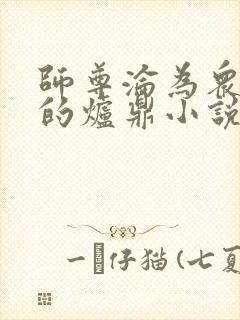 師尊淪為眾
的爐鼎小說
一仔猫(七夏